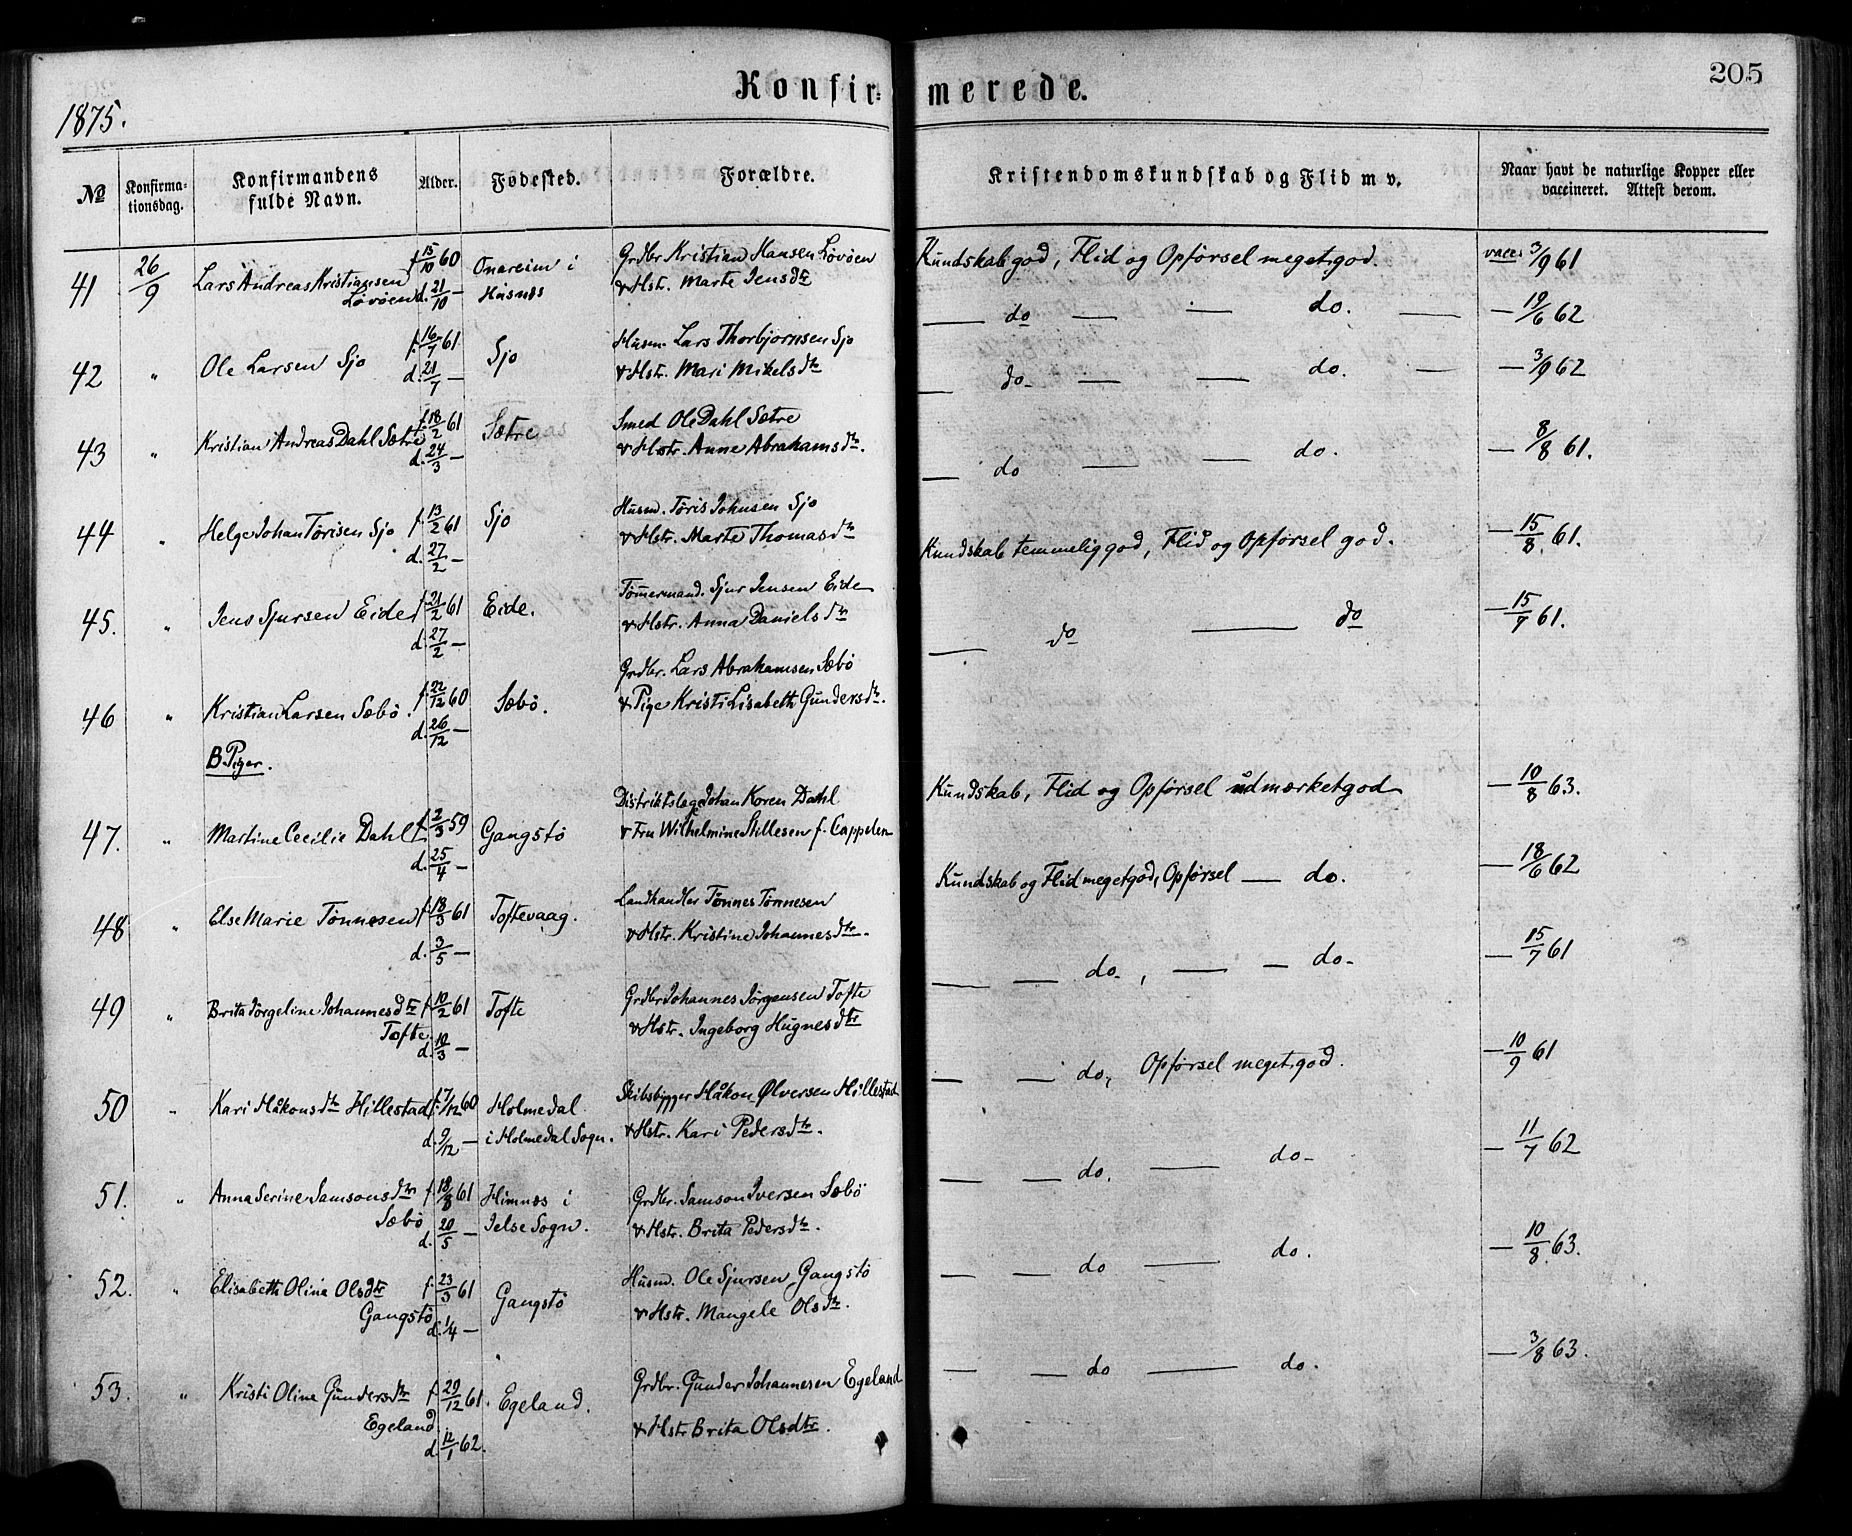 1875.
Konfir-
merede.
205
No
Konfirma-
tionsdag.
Konfirmandens
fulde Navn.
Alder.
Fødested.
Forældre.
Kristendomskundskab og Flid m v.
Naar havt de naturlige Kopper eller
vaccineret. Attest derom.
41 26/9 Lars Andreas Kristiansen f. 15/10 60 Onareim i Grdbr Kristian Hansen Løvøen Kundskab god, Flid og Opførsel meget god. vacc. 3/9 61
Løvøen d. 21/10 — Husnæs & Hstr. Marte Jensdtr
— do — — do. — — 19/6 62
42 " Ole Larsen Sjo f. 16/7 61 Sjo Husm. Lars Thorbjørnsen Sjo
d. 21/7 — & Hstr. Mari Mikelsdtr — do — — do. — — 3/9 62
43 " Kristian Andreas Dahl Sætre f. 18/2 61 Sætre Smed Ole Dahl Sætre
d. 24/3 — & Hstr. Anne Abrahamsdtr. — do — — do. — 8/8 61.
44 " Helge Johan Törisen Sjo f. 13/2 61 Sjo Husmd. Töris Johnsen Sjo
d. 27/2 — & Hstr. Marte Thomasdtr Kundskab temmelig god, Flid og Opførsel god. — 15/8 61.
45. " Jens Sjursen Eide f. 21/2 61 Eide. Tømmermand. Sjur Jensen Eide
d. 27/2 — & Hstr. Anna Danielsdtr — do — do — 15/7 61.
46 " Kristian Larsen Sæbö. f. 22/12 60 Sæbö. Grdbr. Lars Abrahamsen Sæbö
d. 26/12 — & Pige Kristi Lisabeth Gundersdtr.
B. Piger.
47. " Martine Cecilie Dahl f. 2/3 59 Gangstö Distriktslæge Johan Koren Dahl Kundskab, Flid og Opførsel udmærket god — 10/8 63.
d. 25/4 — & Fru Wilhelmine Stillesen f. Cappelen
48 " Else Marie Tönnesen f. 18/3 61 Toftevaag. Landhandler Tönnes Tönnesen Kundskab og Flid meget god, Opførsel — do. — 18/6 62
d. 3/5 — & Hstr. Kristine Johannesdtr.
— — do., — — do. — 15/7 61
49 " Brita Jørgeline Johannesdtr f. 10/2 61 Tofte Grdbr Johannes Jørgensen Tofte
Tofte d. 10/3 — & Hstr. Ingeborg Hugnesdtr
— — do, Opførsel meget god. — 10/9 61
50 " Kari Håkonsdtr Hillestad f. 7/12 60 Holmedal Skibsbygger Håkon Ølversen Hillestad
d. 9/12 — i Holmedal Sogn. & Hstr. Kari Pedersdtr.
— — do. — do. — 11/7 62
51. " Anna Serine Samsonsdtr f. 18/8 61 Himnæs i Grdbr. Samson Iversen Sæbö
Sæbö d. 20/5 — Jelse Sogn. & Hstr. Brita Pedersdtr.
— — do — do. — 10/8 63.
52. " Elisabeth Olina Olsdtr f. 23/3 61 Gangstö Husmd. Ole Sjursen Gangstö
Gangstö d. 1/4 — & Hstr. Mangele Olsdtr.
— — do — do. — 3/8 63.
53. " Kristi Oline Gundersdtr f. 29/12 61. Egeland. Grdbr. Gunder Johannesen Egeland
Egeland d. 12/1 62. & Hstr Brita Olsdtr.